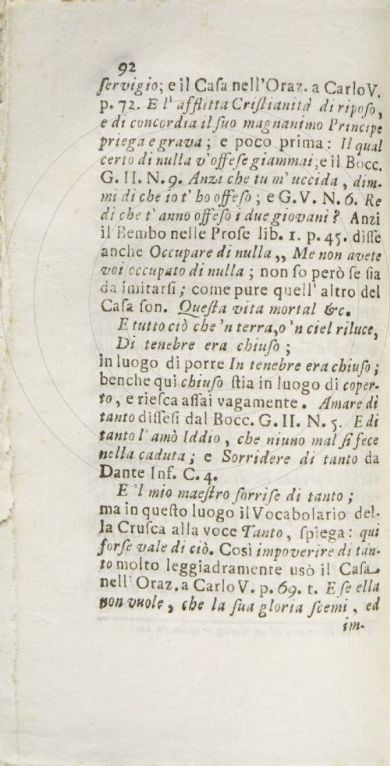 92
ſervigio; e il Caſa nell'Oraz. a Carlo V.
p. 72. E l' afflitta Criſtianità di ripoſo,
e di concordia il ſuo magnanimo Principe
priega e grava; e poco prima: Il qual
certo di nulla v'offeſe giammai; e il Bocc.
G. II. N. 9. Anzi che tu m'uccida, dim-
mi di che io t' ho offeſo; e G. V. N. 6. Re
di che t' anno offeſo i due giovani? Anzi
il Bembo nelle Proſe lib. 1. p. 45. diſſe
anche Occupare di nulla,, Me non avete
voi occupato di nulla; non ſo però ſe ſia
da imitarſi; come pure quell' altro del
Caſa ſon. Queſta vita mortal &c.
E tutto ciò che 'n terra, o 'n ciel riluce,
Di tenebre era chiuſo;
in luogo di porre In tenebre era chiuſo;
benche qui chiuſo ſtia in luogo di coper-
to, e rieſca aſſai vagamente. Amare di
tanto diſſeſi dal Bocc. G. II. N. 5. E di
tanto l' amò Iddio, che niuno mal ſi fece
nella caduta; e Sorridere di tanto da
Dante Inf. C. 4.
E 'l mio maeſtro ſorriſe di tanto;
ma in queſto luogo il Vocabolario del-
la Cruſca alla voce Tanto, ſpiega: qui
forſe vale di ciò. Così impoverire di tan-
to molto leggiadramente usò il Caſa
nell' Oraz. a Carlo V. p. 69. t. E ſe ella
non vuole, che la ſua gloria ſcemi, ed
im-